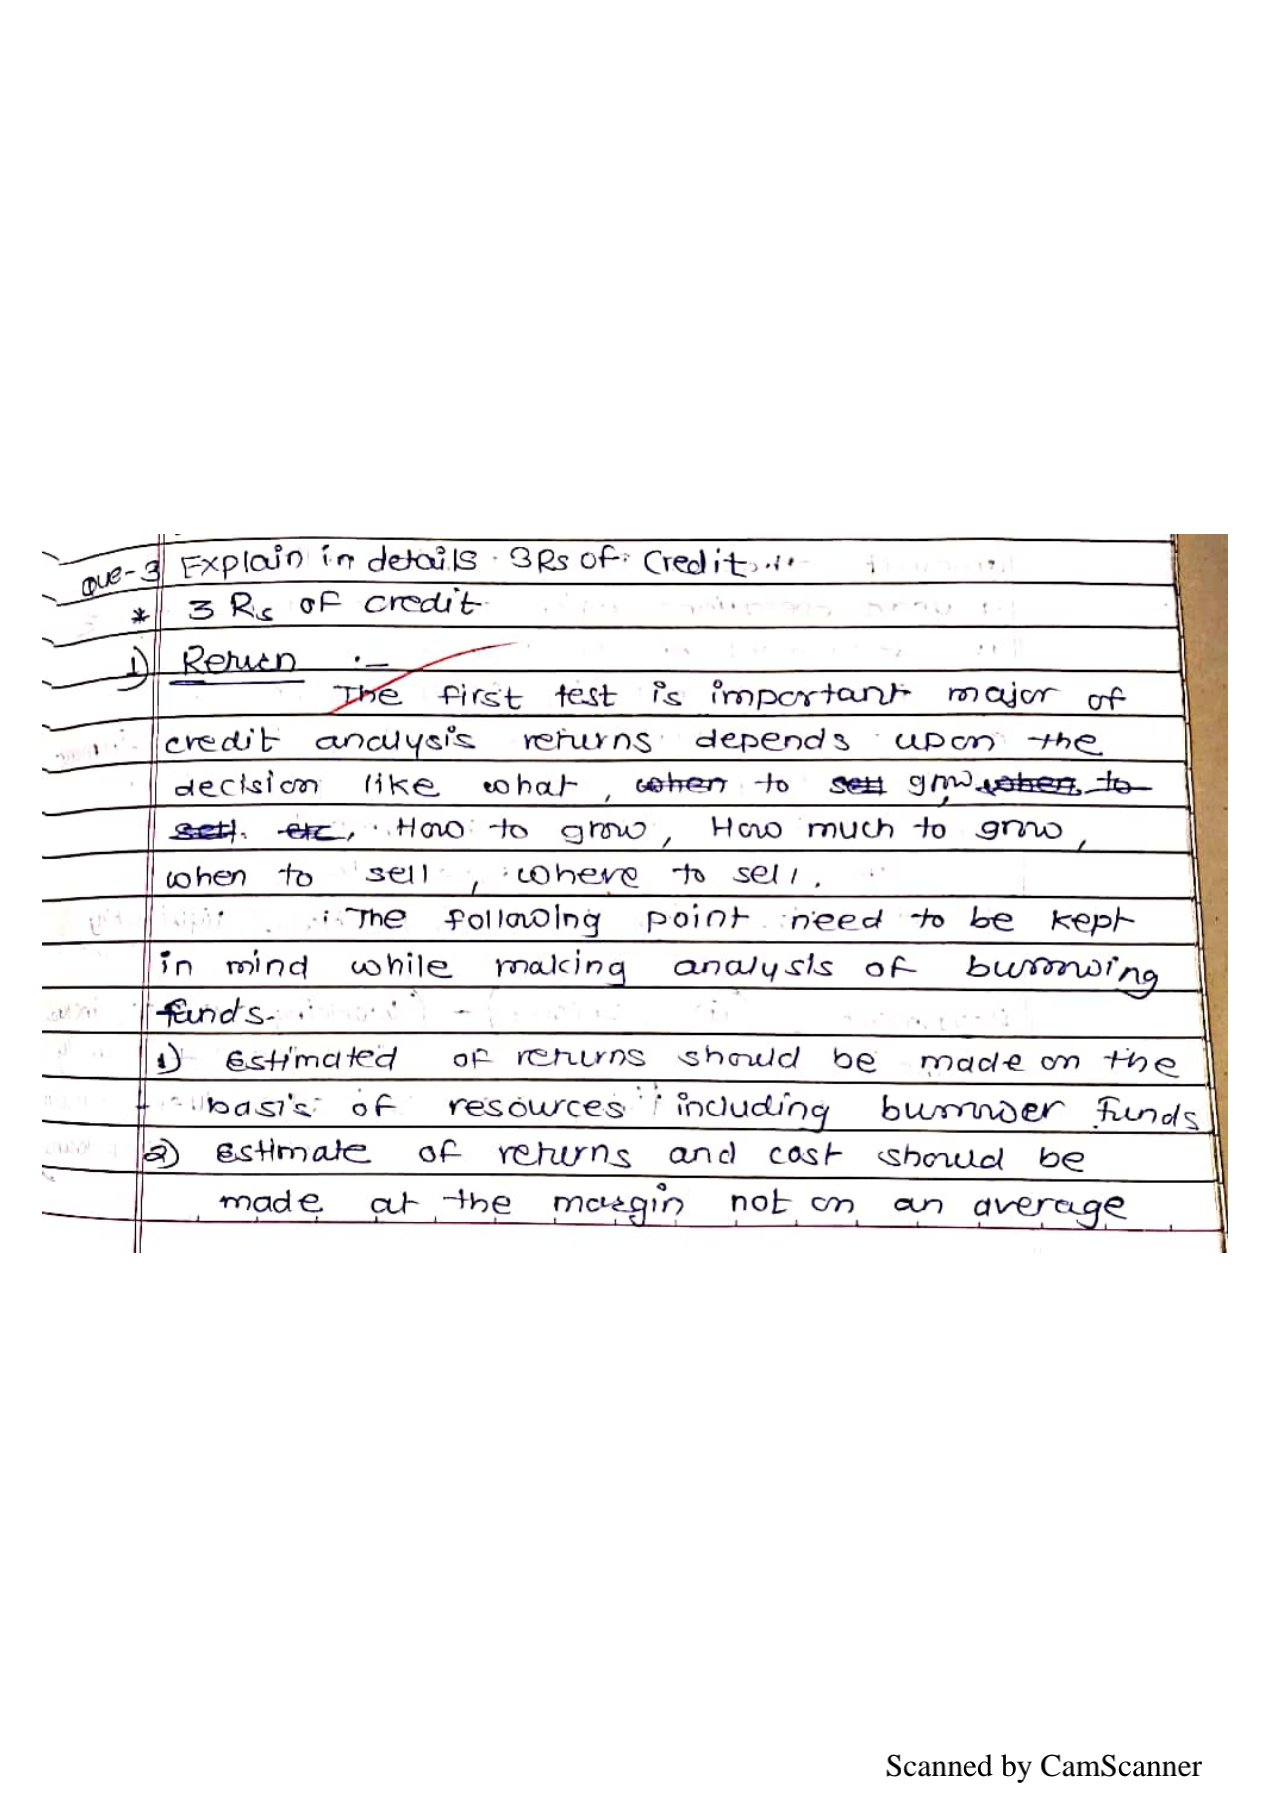 Que-3 Explain in details 3Rs of Credit
* 3 Rs of credit
1) Return :-
The first test is important major of
credit analysis returns depends upon the
decision like what, when to sell grow, when to
sell. etc, How to grow, How much to grow,
when to sell, where to sell.
The following point need to be kept
in mind while making analysis of burrowing
funds.
1) Estimated of returns should be made on the
basis of resources including burrower funds
2) Estimate of returns and cost should be
made at the margin not on an average
Scanned by CamScanner